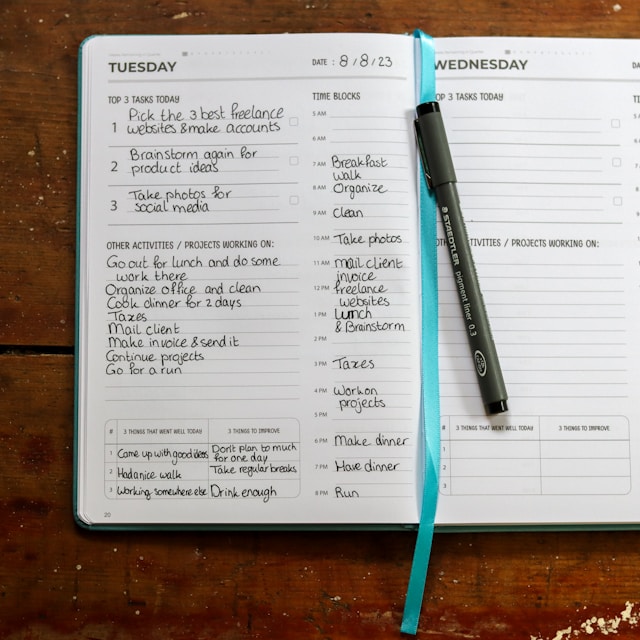 TUESDAY
DATE : 8/8/23
TOP 3 TASKS TODAY
1 Pick the 3 best freelance
websites & make accounts
2 Brainstorm again for
product ideas
3 Take photos for
social media
OTHER ACTIVITIES / PROJECTS WORKING ON:
Go out for lunch and do some
work there
Organize office and clean
Cook dinner for 2 days
Taxes
Mail client
Make invoice & send it
Continue projects
Go for a run
# 3 THINGS THAT WENT WELL TODAY 3 THINGS TO IMPROVE
1 Came up with good ideas Don't plan to much
for one day
2 Had a nice walk Take regular breaks
3 Working somewhere else Drink enough
20
TIME BLOCKS
5 AM
6 AM
7 AM Breakfast
walk
8 AM Organize
9 AM Clean
10 AM Take photos
11 AM Mail client
invoice
12 PM freelance
websites
1 PM Lunch
& Brainstorm
2 PM
3 PM Taxes
4 PM Work on
projects
5 PM
6 PM Make dinner
7 PM Have dinner
8 PM Run
STAEDTLER pigment liner 0.3
WEDNESDAY
DA
TOP 3 TASKS TODAY
TIVITIES / PROJECTS WORKING ON:
# 3 THINGS THAT WENT WELL TODAY 3 THINGS TO IMPROVE
1
2
3